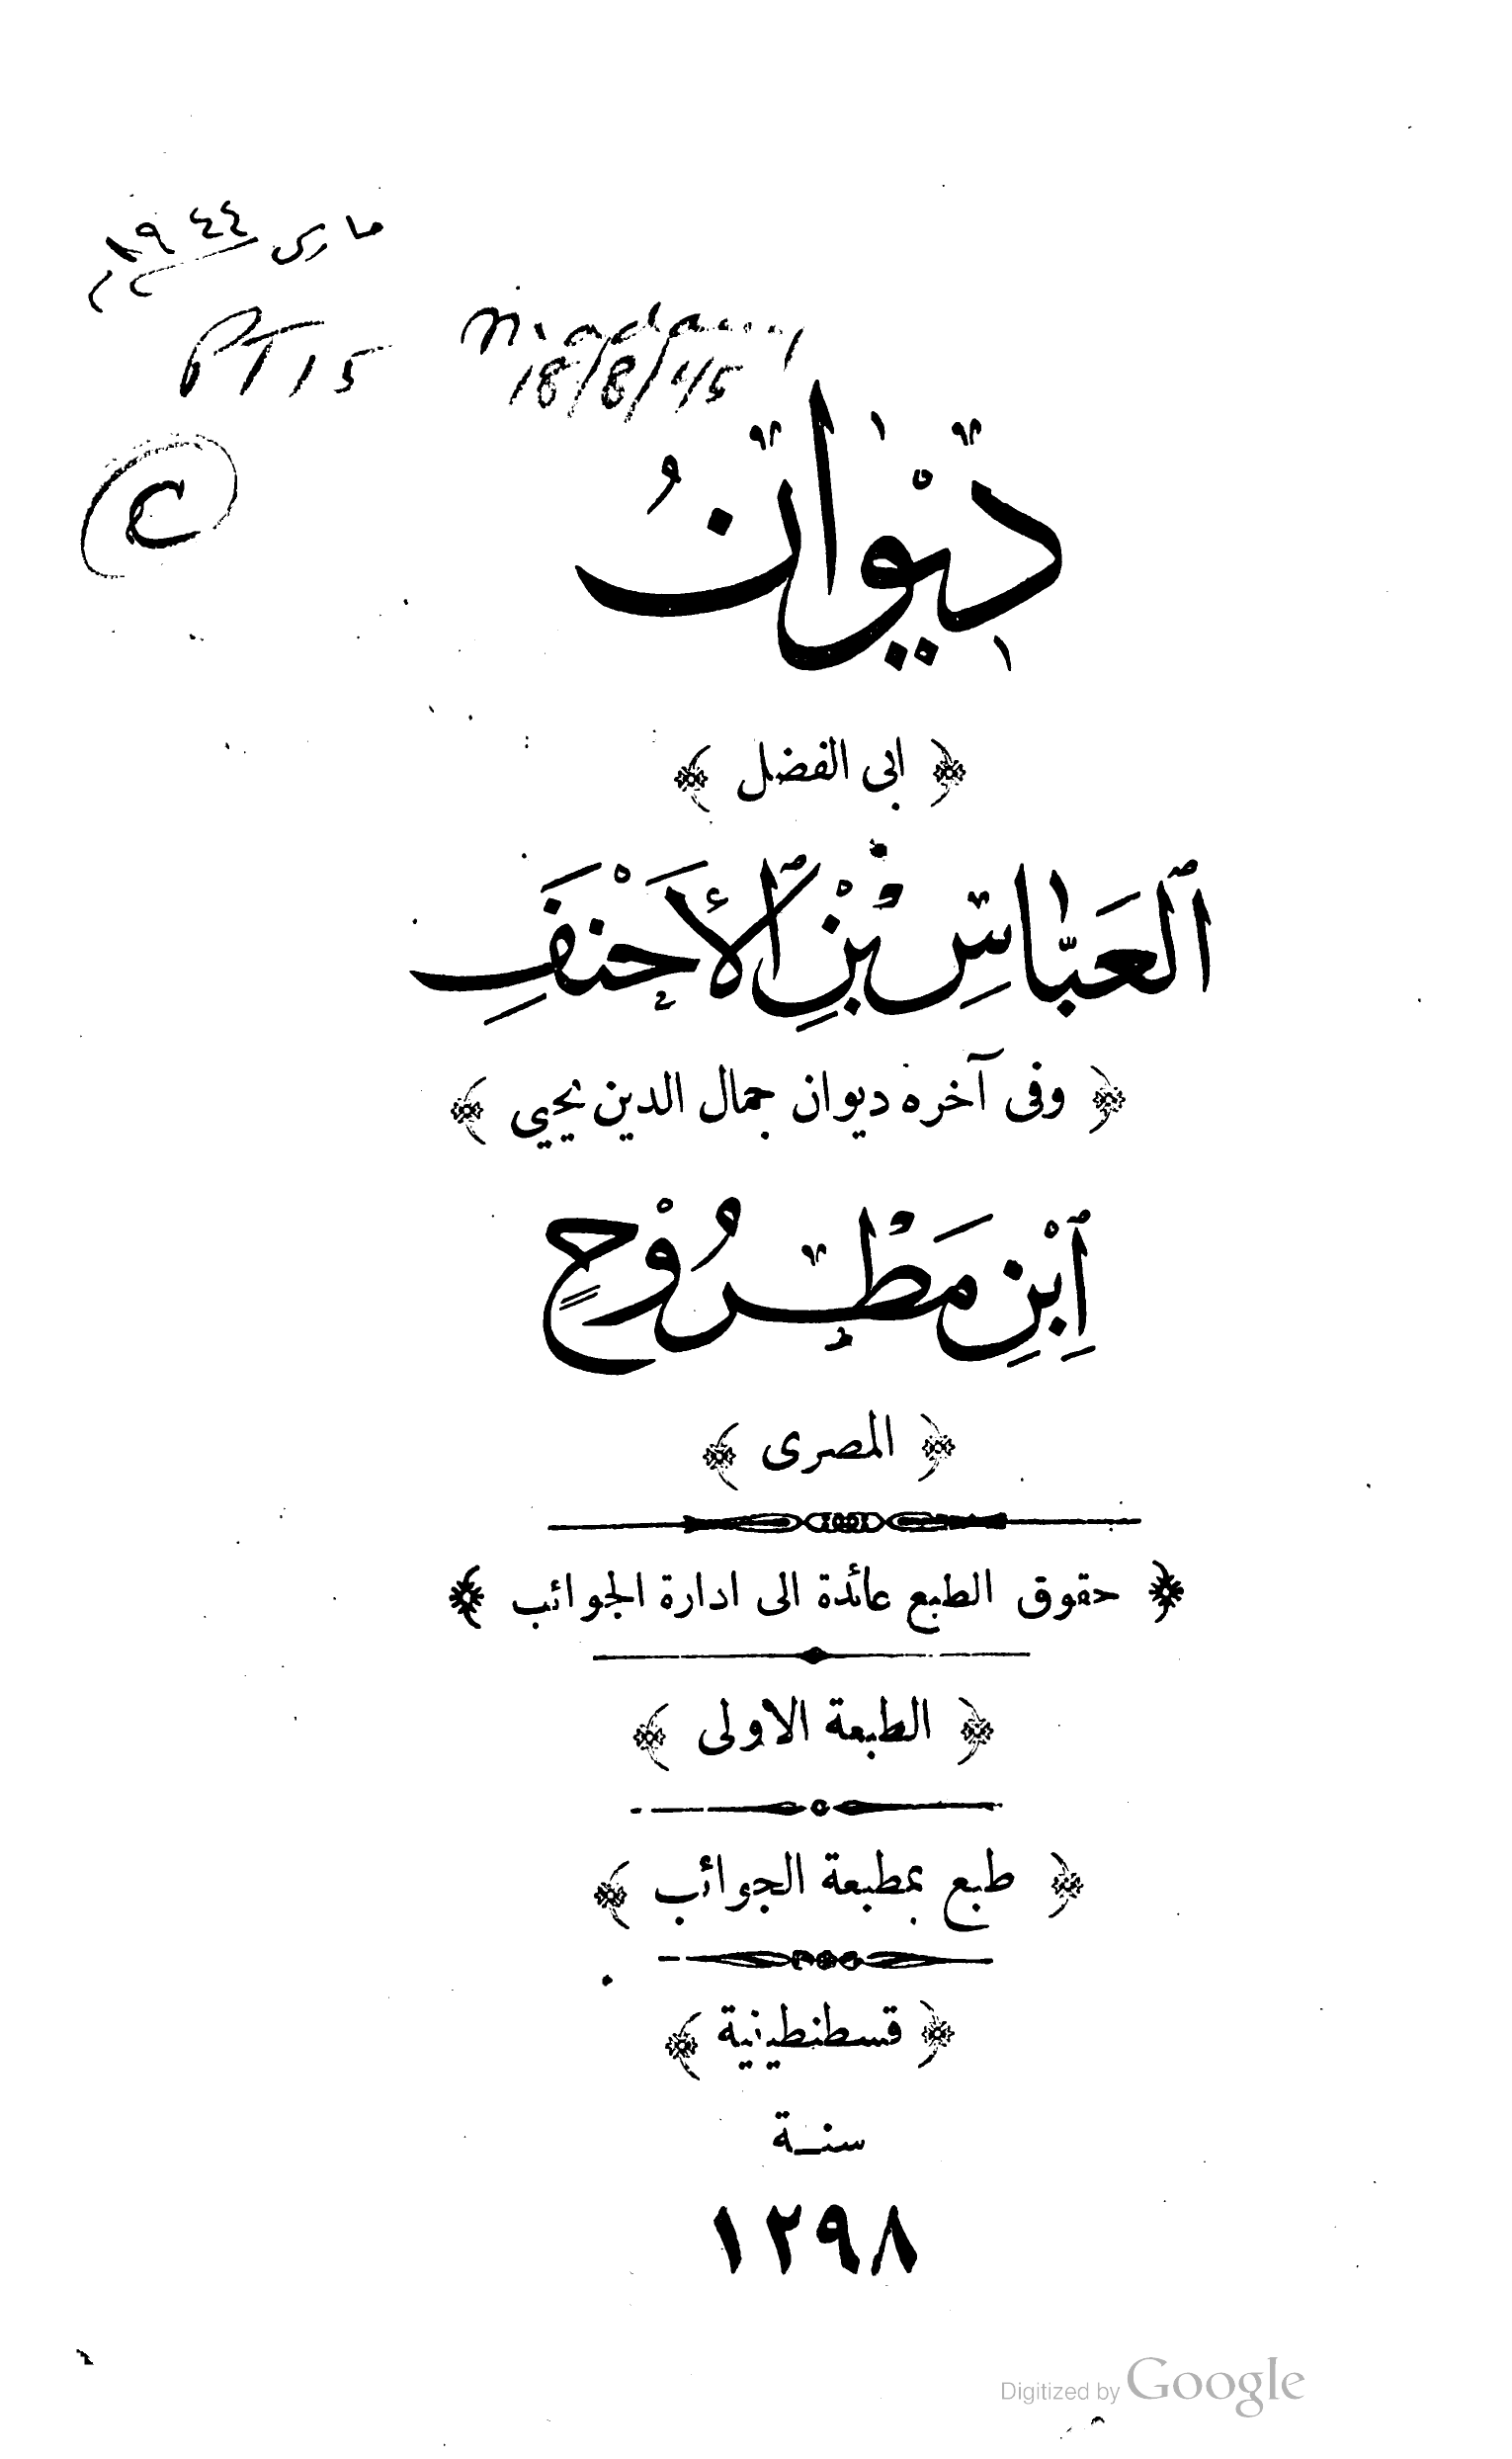 مارس ١٩٤٤
PT 15
18/8/45
C
دِيْوَانُ
﴿ ابى الفضل ﴾
ٱلْعَبَّاسِ بْنِ ٱلْأَحْنَفِ
﴿ وفى آخره ديوان جمال الدين يحيي ﴾
ٱبْنِ مَطْرُوْحٍ
﴿ المصرى ﴾
﴿ حقوق الطبع عائدة الى ادارة الجوائب ﴾
﴿ الطبعة الاولى ﴾
﴿ طبع بمطبعة الجوائب ﴾
﴿ قسطنطينية ﴾
سنة
١٢٩٨
Digitized by Google